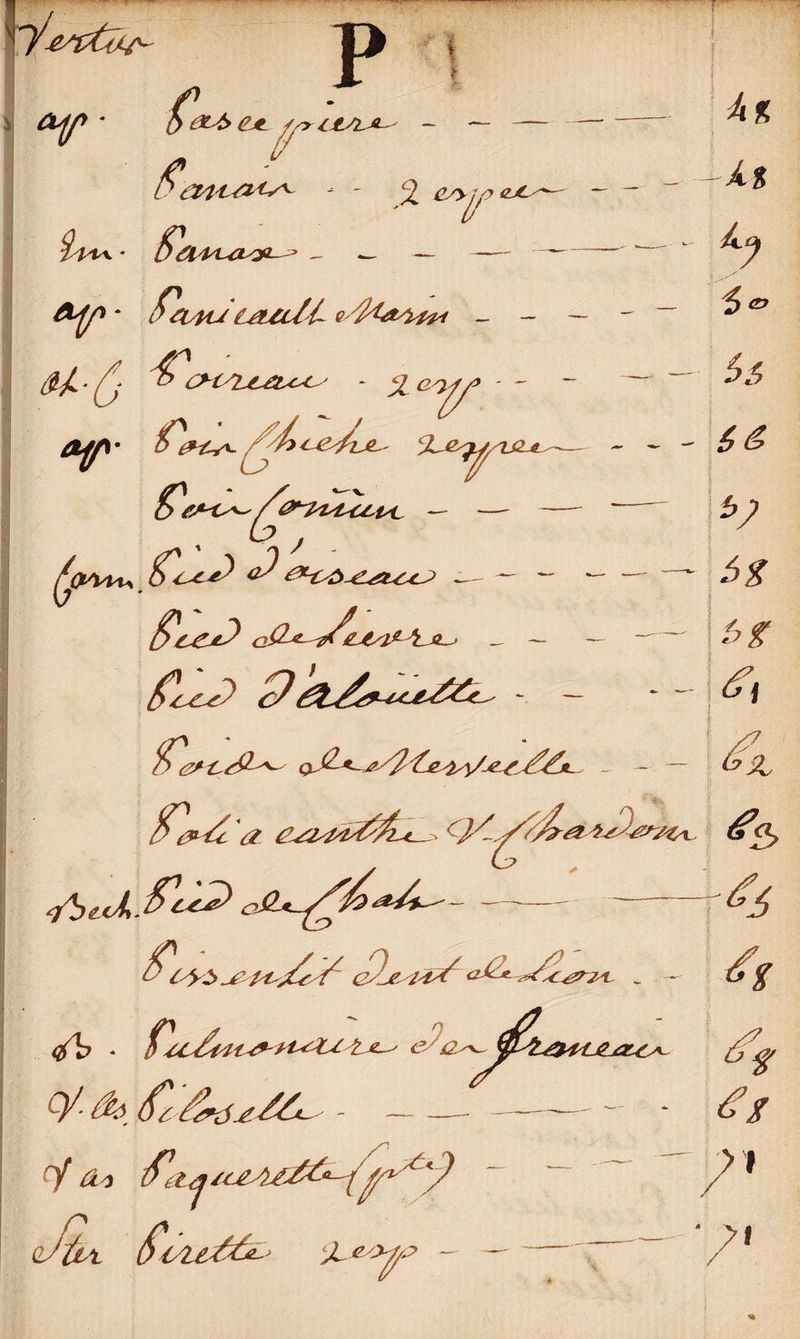 Vertus
P
ap · Passe pierre - - - - 48
Panais - - 2 espec - - - 48
Inv · Panax - - - - - 49
ap · Panicault Marin - - - - 50
Poireau - 2 esp - - - - 55
ap · Pois Chiche 2 espec - - - 56
Pois Commun - - - - 57
Comm. Pied d'oiseau - - - - 58
Pied de Lievre - - - - 58
Pied d'alouette - - - - 61
Poids de Merveille - - - 62
Polia cantha V. Chardons 63
Pied de Chat - - - 65
Pissenlit dent de Lion - - 68
Pulmonaire des franceais 68
Piloselle - - - - 68
Paquerette (pte) - - - - 71
Pirette 2 esp - - - - 71